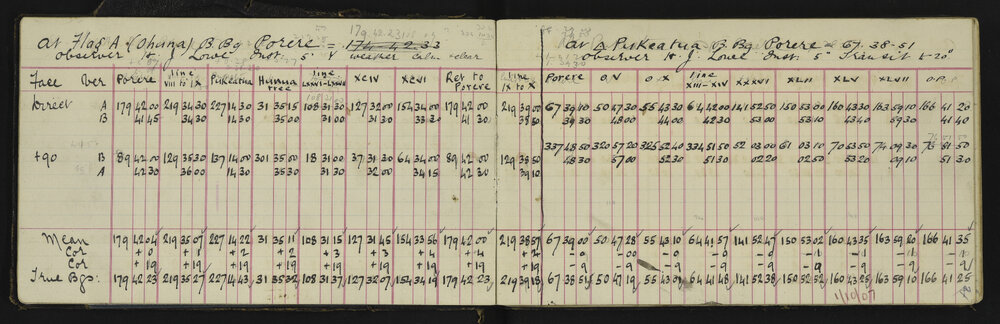 179.42.23
At Flag A (Ohuna) B. Bg Porere = 174-42.33
observer H. J. Lowe Inst. 5" weather calm - clear
Face Ver Porere line VIII to IX Puketatua Hunua tree line LXXVI-LXXVII XCIV XCVI Ret to Porere line IX to X
Direct A 179 42 00 219 34 30 227 14 30 31 35 15 108 31 30 127 32 00 154 34 00 179 42 00 219 39 00
B 41 45 34 30 14 30 35 00 31 00 31 30 33 30 41 30 38 30
+90 B 89 42 00 129 35 30 137 14 00 301 35 00 18 31 00 37 31 30 64 34 00 89 42 00 129 38 50
A 42 30 36 00 14 30 35 30 31 30 32 00 34 15 42 30 39 10
Mean 179 42 04 219 35 07 227 14 22 31 35 11 108 31 15 127 31 45 154 33 56 179 42 00 219 38 57
Cor 0 +1 +2 +2 +3 +3 +4 +4 +2
Cor +19 +19 +19 +19 +19 +19 +19 +19 +19
True Bgs. 179 42 23 219 35 27 227 14 43 31 35 32 108 31 37 127 32 07 154 34 19 179 42 23 219 39 18
At △ Puketatua B. Bg Porere = 67.38-51
observer H. J. Lowe Inst 5" Transit
Porere O.V O.X line XIII-XIV XXXVI XLII XLV XLVII O.P.
67 39 10 50 47 30 55 43 30 64 42 00 141 52 50 150 53 00 160 43 30 163 59 10 166 41 20
39 30 48 00 44 00 42 30 53 00 53 10 43 40 59 30 41 40
337 48 50 320 57 20 325 52 40 334 51 50 52 03 00 61 03 10 70 53 50 74 09 30 76 51 50
48 30 57 00 52 30 51 30 02 20 02 50 53 20 09 10 51 30
67 39 00 50 47 28 55 43 10 64 41 57 141 52 47 150 53 02 160 43 35 163 59 20 166 41 35
-0 -0 -0 -0 -0 -1 -1 -1 -1
-9 -9 -9 -9 -9 -9 -9 -9 -9
67 38 51 50 47 19 55 43 01 64 41 48 141 52 38 150 52 52 160 43 25 163 59 10 166 41 25
1/10/07